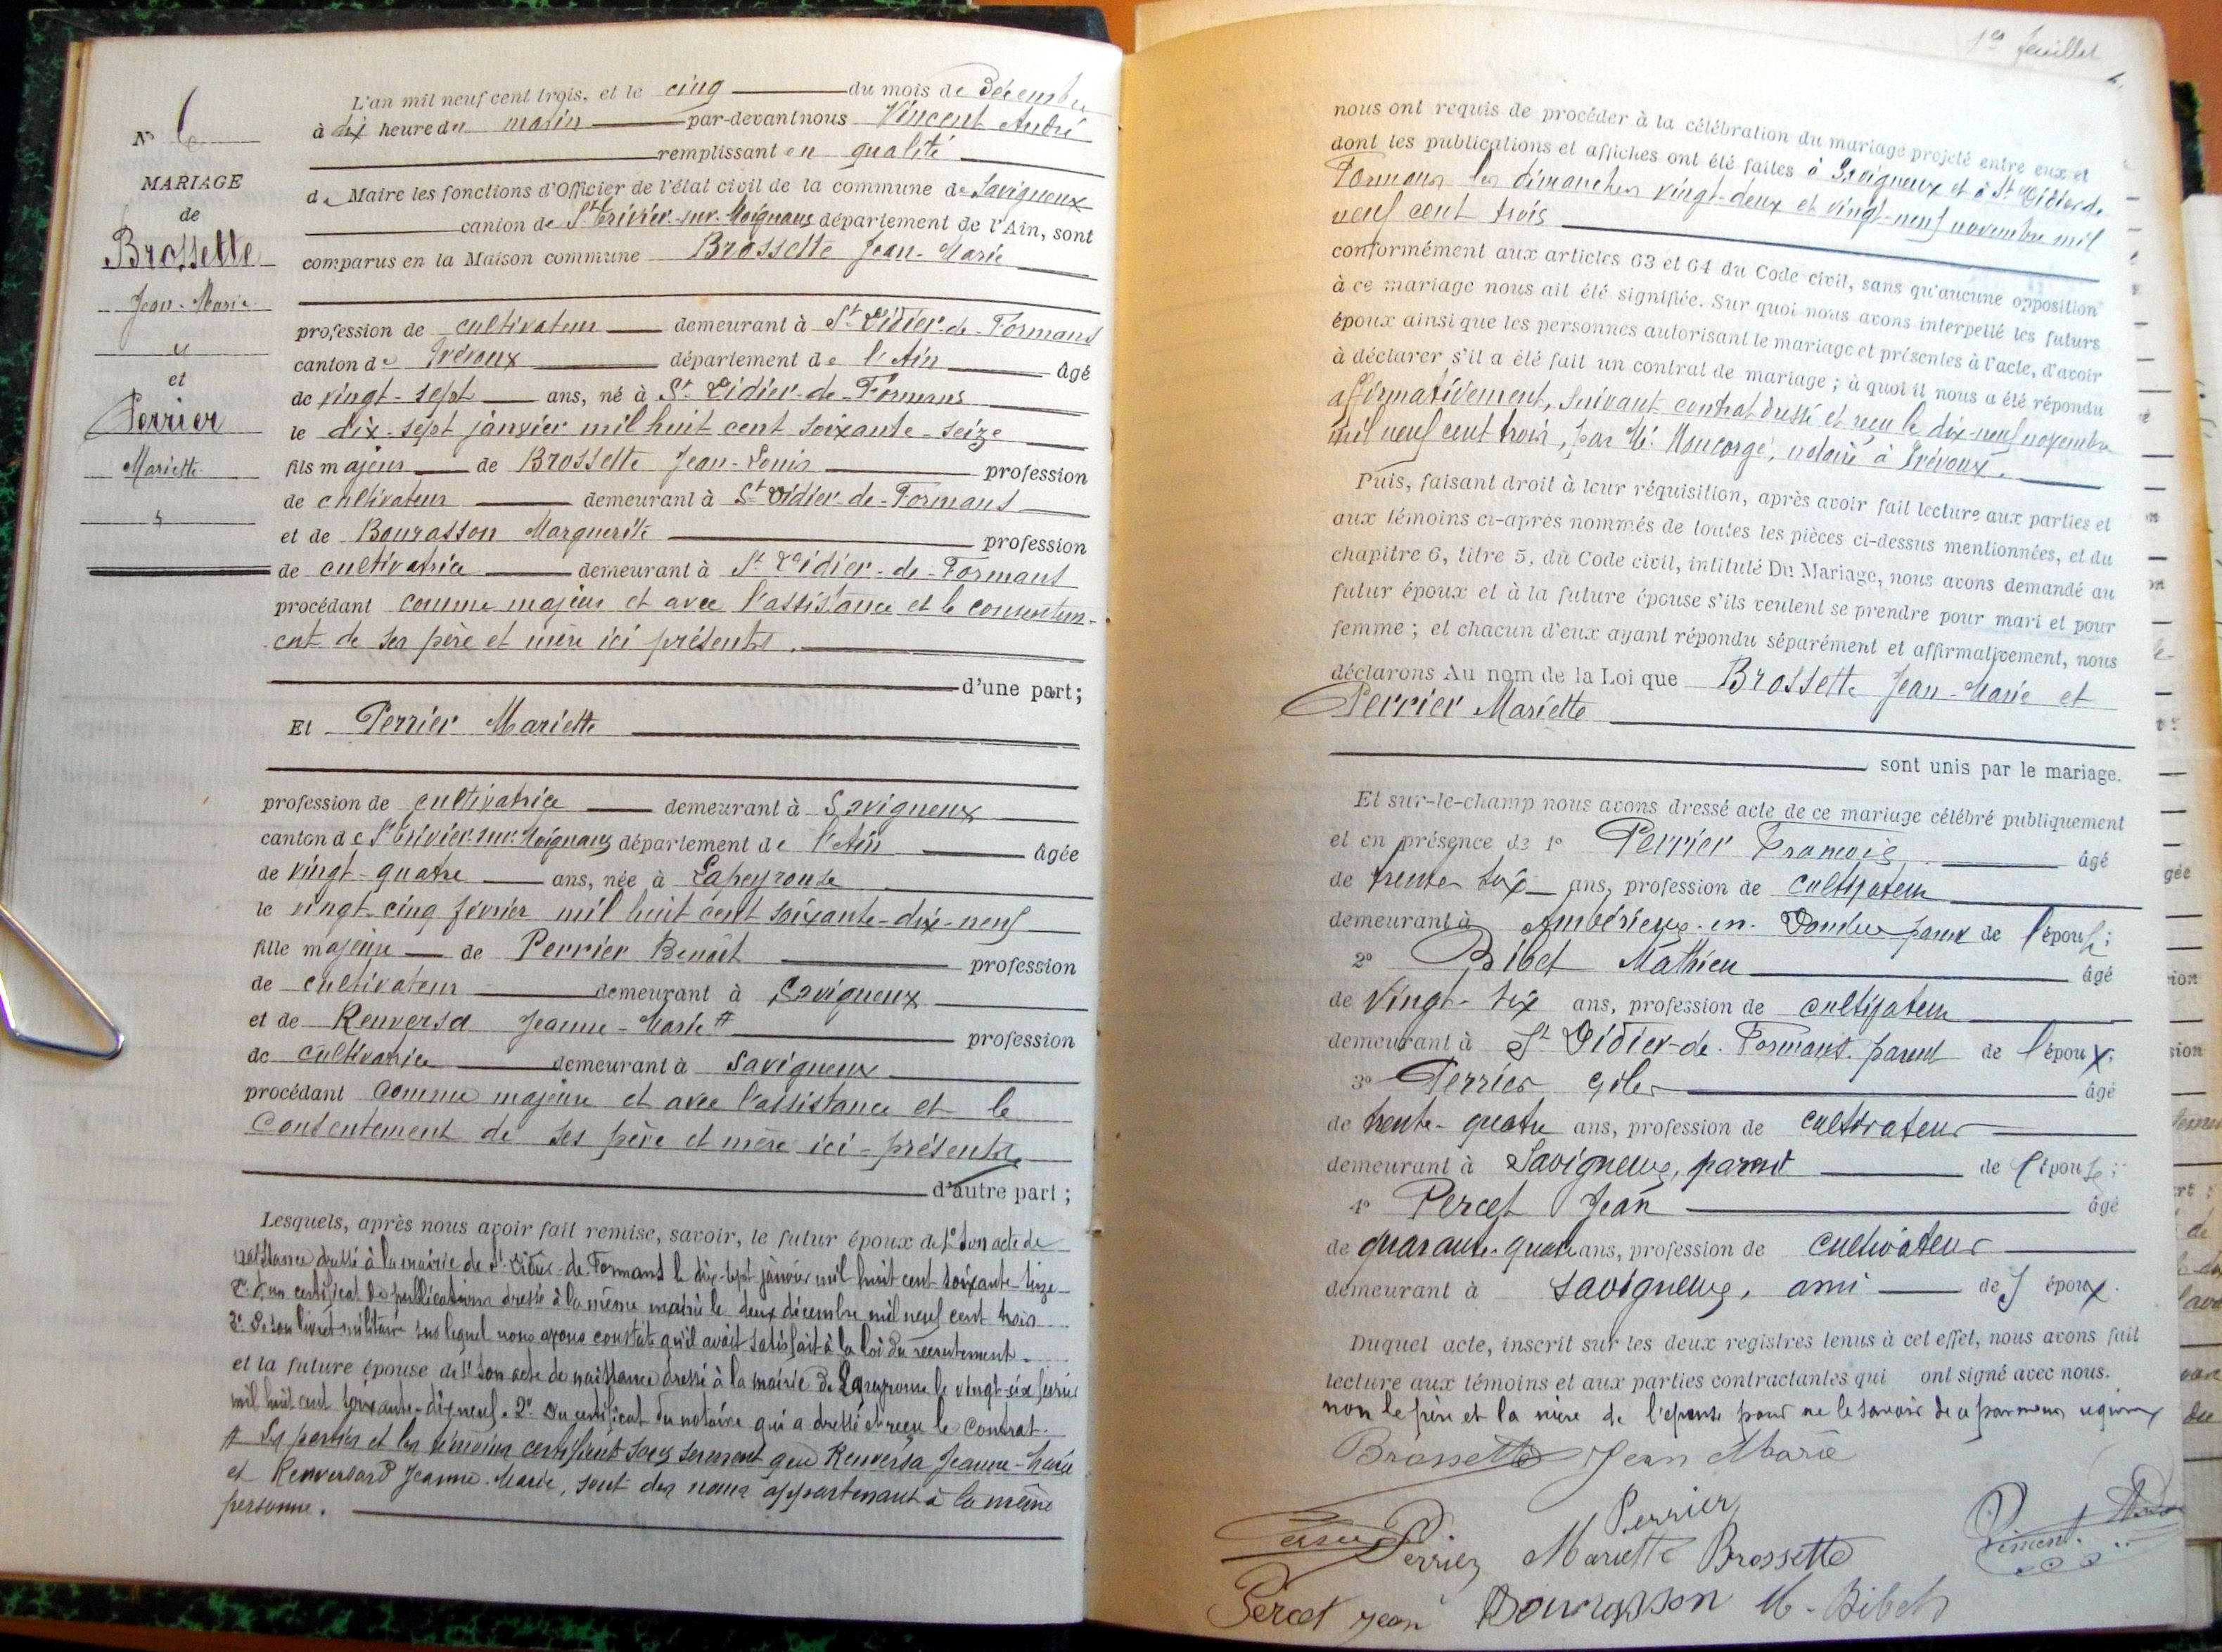 N° 6
MARIAGE
de
Brossette
Jean-Marie
et
Perrier
Mariette
L'an mil neuf cent trois, et le cinq du mois de Décembre
à dix heure du matin par-devant nous Vincent André
remplissant en qualité
de Maire les fonctions d'Officier de l'état civil de la commune de Savigneux
canton de St Trivier-sur-Moignans département de l'Ain, sont
comparus en la Maison commune Brossette Jean-Marie
profession de cultivateur demeurant à St Didier-de-Formans
canton de Trévoux département de l'Ain âgé
de vingt-sept ans, né à St Didier-de-Formans
le dix-sept janvier mil huit cent soixante-seize
fils majeur de Brossette Jean-Louis profession
de cultivateur demeurant à St Didier-de-Formans
et de Bourasson Marguerite profession
de cultivatrice demeurant à St Didier-de-Formans
procédant comme majeur et avec l'assistance et le consentem-
ent de ses père et mère ici présents.
d'une part;
Et Perrier Mariette
profession de cultivatrice demeurant à Savigneux
canton de St Trivier-sur-Moignans département de l'Ain âgée
de vingt-quatre ans, née à Lapeyrouse
le vingt-cinq février mil huit cent soixante-dix-neuf
fille majeure de Perrier Benoît profession
de cultivateur demeurant à Savigneux
et de Renversa Jeanne-Marie # profession
de cultivatrice demeurant à Savigneux
procédant comme majeure et avec l'assistance et le
Consentement de ses père et mère ici-présents
d'autre part;
Lesquels, après nous avoir fait remise, savoir, le futur époux de 1° son acte de
naissance dressé à la mairie de St Didier-de-Formans le dix-sept janvier mil huit cent soixante-seize
2° D'un certificat de publications dressé à la même mairie le deux décembre mil neuf cent trois
3° De son livret militaire sur lequel nous avons constaté qu'il avait satisfait à la loi du recrutement.
et la future épouse de 1° son acte de naissance dressé à la mairie de Lapeyrouse le vingt-six février
mil huit cent soixante-dix-neuf. 2° Du certificat du notaire qui a dressé et reçu le contrat.
# Les parties et les témoins certifient sous serment que Renversa Jeanne-Marie
et Renversard Jeanne-Marie, sont des noms appartenant à la même
personne.
1er feuillet
nous ont requis de procéder à la célébration du mariage projeté entre eux et
dont les publications et affiches ont été faites à Savigneux et à St Didier de
Formans les dimanches vingt-deux et vingt-neuf novembre mil
neuf cent trois
conformément aux articles 63 et 64 du Code civil, sans qu'aucune opposition
à ce mariage nous ait été signifiée. Sur quoi nous avons interpellé les futurs
époux ainsi que les personnes autorisant le mariage et présentes à l'acte, d'avoir
à déclarer s'il a été fait un contrat de mariage; à quoi il nous a été répondu
affirmativement, suivant contrat dressé et reçu le dix-neuf novembre
mil neuf cent trois, par Me Moncorgé, notaire à Trévoux.
Puis, faisant droit à leur réquisition, après avoir fait lecture aux parties et
aux témoins ci-après nommés de toutes les pièces ci-dessus mentionnées, et du
chapitre 6, titre 5, du Code civil, intitulé Du Mariage, nous avons demandé au
futur époux et à la future épouse s'ils veulent se prendre pour mari et pour
femme; et chacun d'eux ayant répondu séparément et affirmativement, nous
déclarons Au nom de la Loi que Brossette Jean-Marie et
Perrier Mariette
sont unis par le mariage.
Et sur-le-champ nous avons dressé acte de ce mariage célébré publiquement
et en présence de 1° Perrier François âgé
de trente six ans, profession de cultivateur
demeurant à Ambérieux-en-Dombes parent de l'épouse;
2° Bibet Mathieu âgé
de vingt-six ans, profession de cultivateur
demeurant à St Didier-de-Formans parent de l'époux;
3° Perrier âgé
de trente-quatre ans, profession de cultivateur
demeurant à Savigneux, parent de l'épouse;
4° Percet Jean âgé
de quarante-quatre ans, profession de cultivateur
demeurant à Savigneux, ami de l'époux.
Duquel acte, inscrit sur les deux registres tenus à cet effet, nous avons fait
lecture aux témoins et aux parties contractantes qui ont signé avec nous.
non le père et la mère de l'épouse pour ne le savoir de ce par nous requis
Brossette Jean Marie
Perrier
Perrier Mariette Brossette Vincent
Percet Jean Bourasson M. Bibet